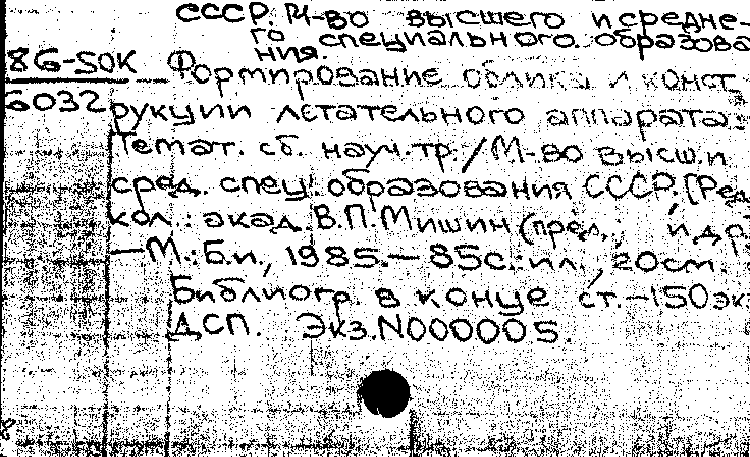 СССР. М-во высшего и средне-
го специального образова
ния.
86-SOK Формирование облика и конст-
6032 рукции летательного аппарата:
Темат. сб. науч. тр. / М-во высш. и
сред. спец. образования СССР. [Ред.
кол.: акад. В.П. Мишин (пред., и др.
— М.: Б.и., 1985. — 85с.: ил., 20см.
Библиогр. в конце ст. — 150 эк.
ДСП. Экз. N000005.